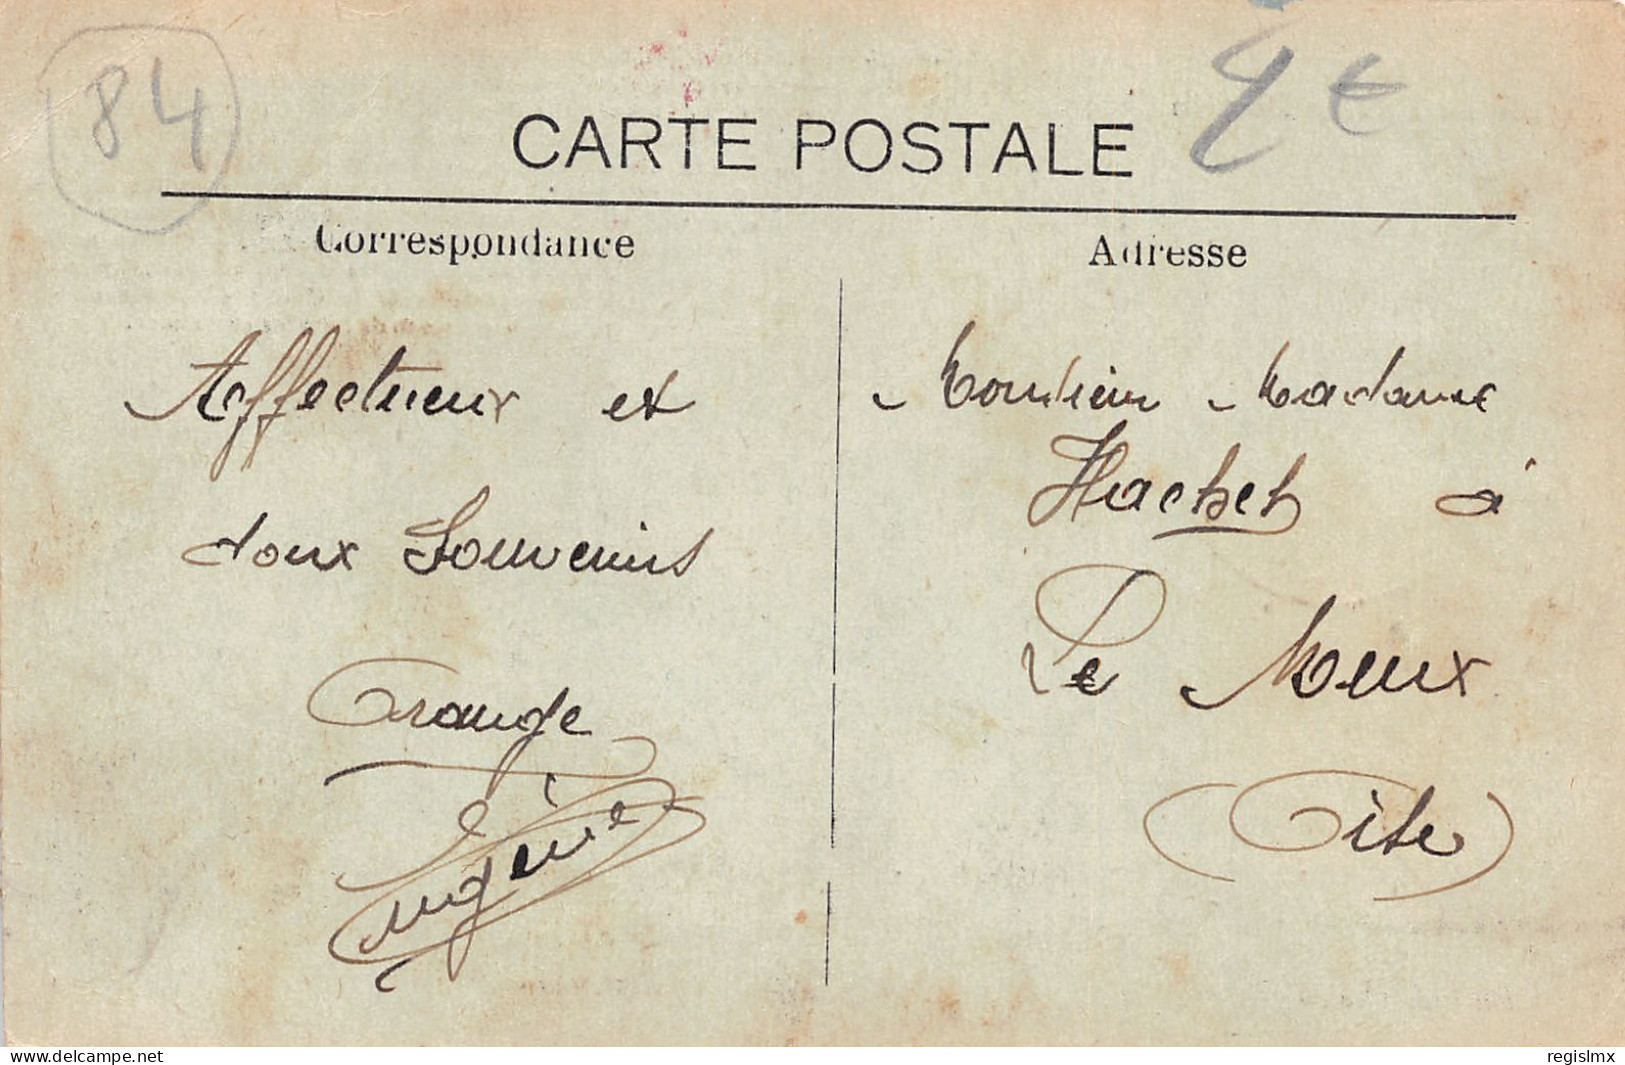 84
2 €
CARTE POSTALE
Correspondance
Affectueux et
doux Souvenirs
Orange
Eugénie
Adresse
Monsieur Madame
Hachet à
Le Meux
(Oise)
www.delcampe.net
regislmx